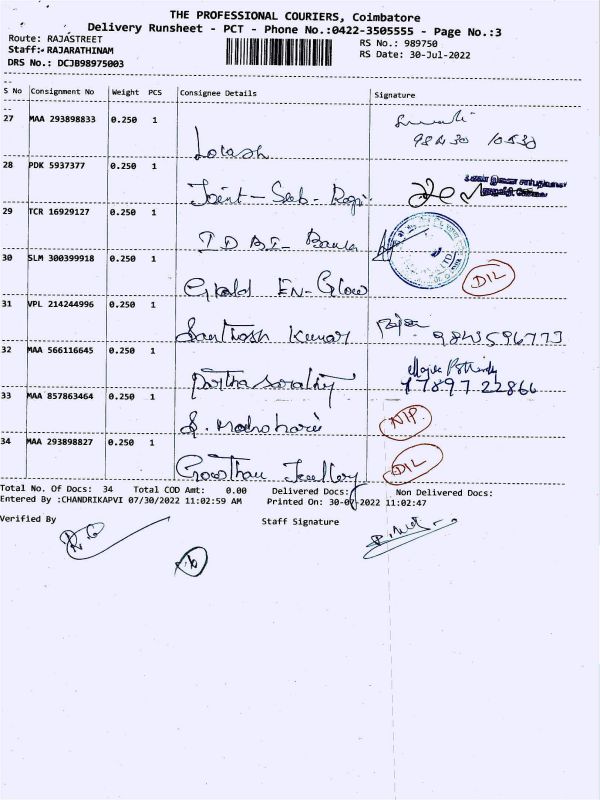 THE PROFESSIONAL COURIERS, Coimbatore
Delivery Runsheet - PCT - Phone No.:0422-3505555 - Page No.:3
Route: RAJASTREET
RS No.: 989750
Staff:- RAJARATHINAM
RS Date: 30-Jul-2022
DRS No.: DCJB98975003
S No Consignment No Weight PCS Consignee Details Signature
27 MAA 293898833 0.250 1 Lokesh
28 PDK 5937377 0.250 1 Joint - Sub - Regi
29 TCR 16929127 0.250 1 IDBI - Bank
30 SLM 300399918 0.250 1 Gold EN - Glow D/L
31 VPL 214244996 0.250 1 Santhosh Kumar 9843596773
32 MAA 566116645 0.250 1 Parthasarathy 77897 22866
33 MAA 857863464 0.250 1 S. Manohari
34 MAA 293898827 0.250 1 Gowtham Jewellery D/L
Total No. Of Docs: 34 Total COD Amt: 0.00 Delivered Docs: Non Delivered Docs:
Entered By :CHANDRIKAPVI 07/30/2022 11:02:59 AM Printed On: 30-07-2022 11:02:47
Verified By Staff Signature